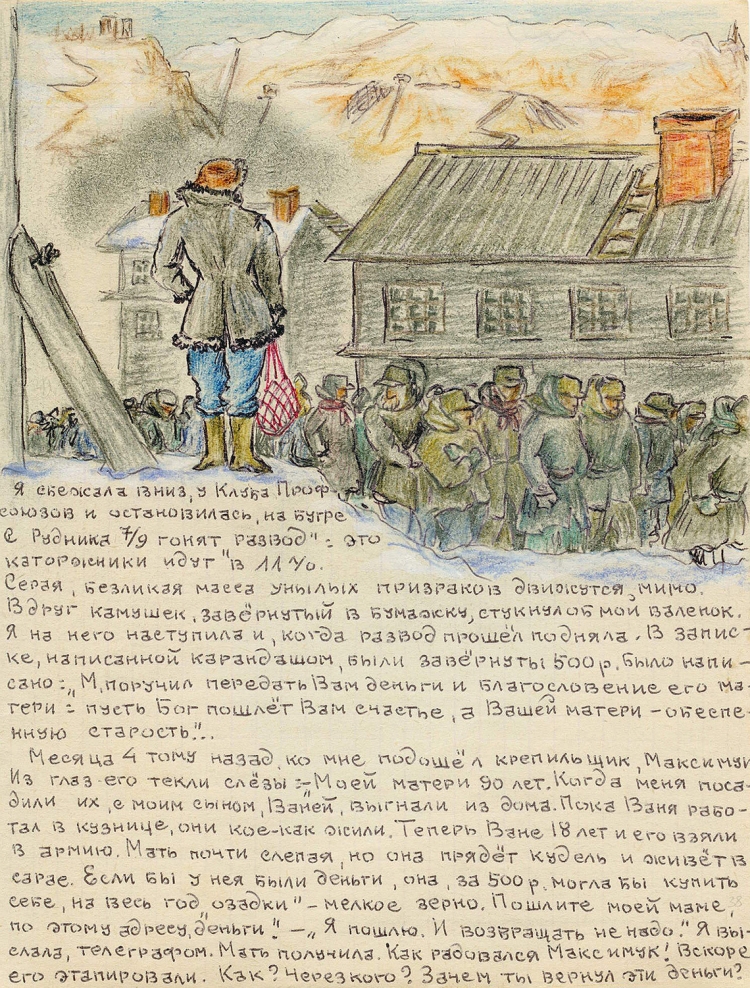 Я сбежала вниз, у Клуба Проф-
союзов и остановилась, на бугре
С Рудника 7/9 гонят развод": это
каторжники идут "в 11 У.
Серая, безликая масса унылых призраков движутся мимо.
Вдруг камушек, завёрнутый в бумажку, стукнул об мой валенок.
Я на него наступила и, когда развод прошёл подняла. В запис-
ке, написанной карандашом, были завёрнуты 500 р. Было напи-
сано: „М. поручил передать Вам деньги и благословение его ма-
тери: пусть Бог пошлёт Вам счастье, а Вашей матери – обеспе-
нную старость"..
Месяца 4 тому назад ко мне подошёл крепильщик, Максимук
Из глаз его текли слёзы: – Моей матери 90 лет. Когда меня поса-
дили их, с моим сыном, Ваней, выгнали из дома. Пока Ваня рабо-
тал в кузнице, они кое-как жили. Теперь Ване 18 лет и его взяли
в армию. Мать почти слепая, но она прядёт кудель и живёт в
сарае. Если бы у нея были деньги, она, за 500 р. могла бы купить
себе, на весь год озадки" – мелкое зерно. Пошлите моей маме,
по этому адресу, деньги!" – „Я пошлю. И возвращать не надо." Я вы-
слала, телеграфом. Мать получила. Как радовался Максимук! Вскоре
его этапировали. Как? Через кого? Зачем ты вернул эти деньги?